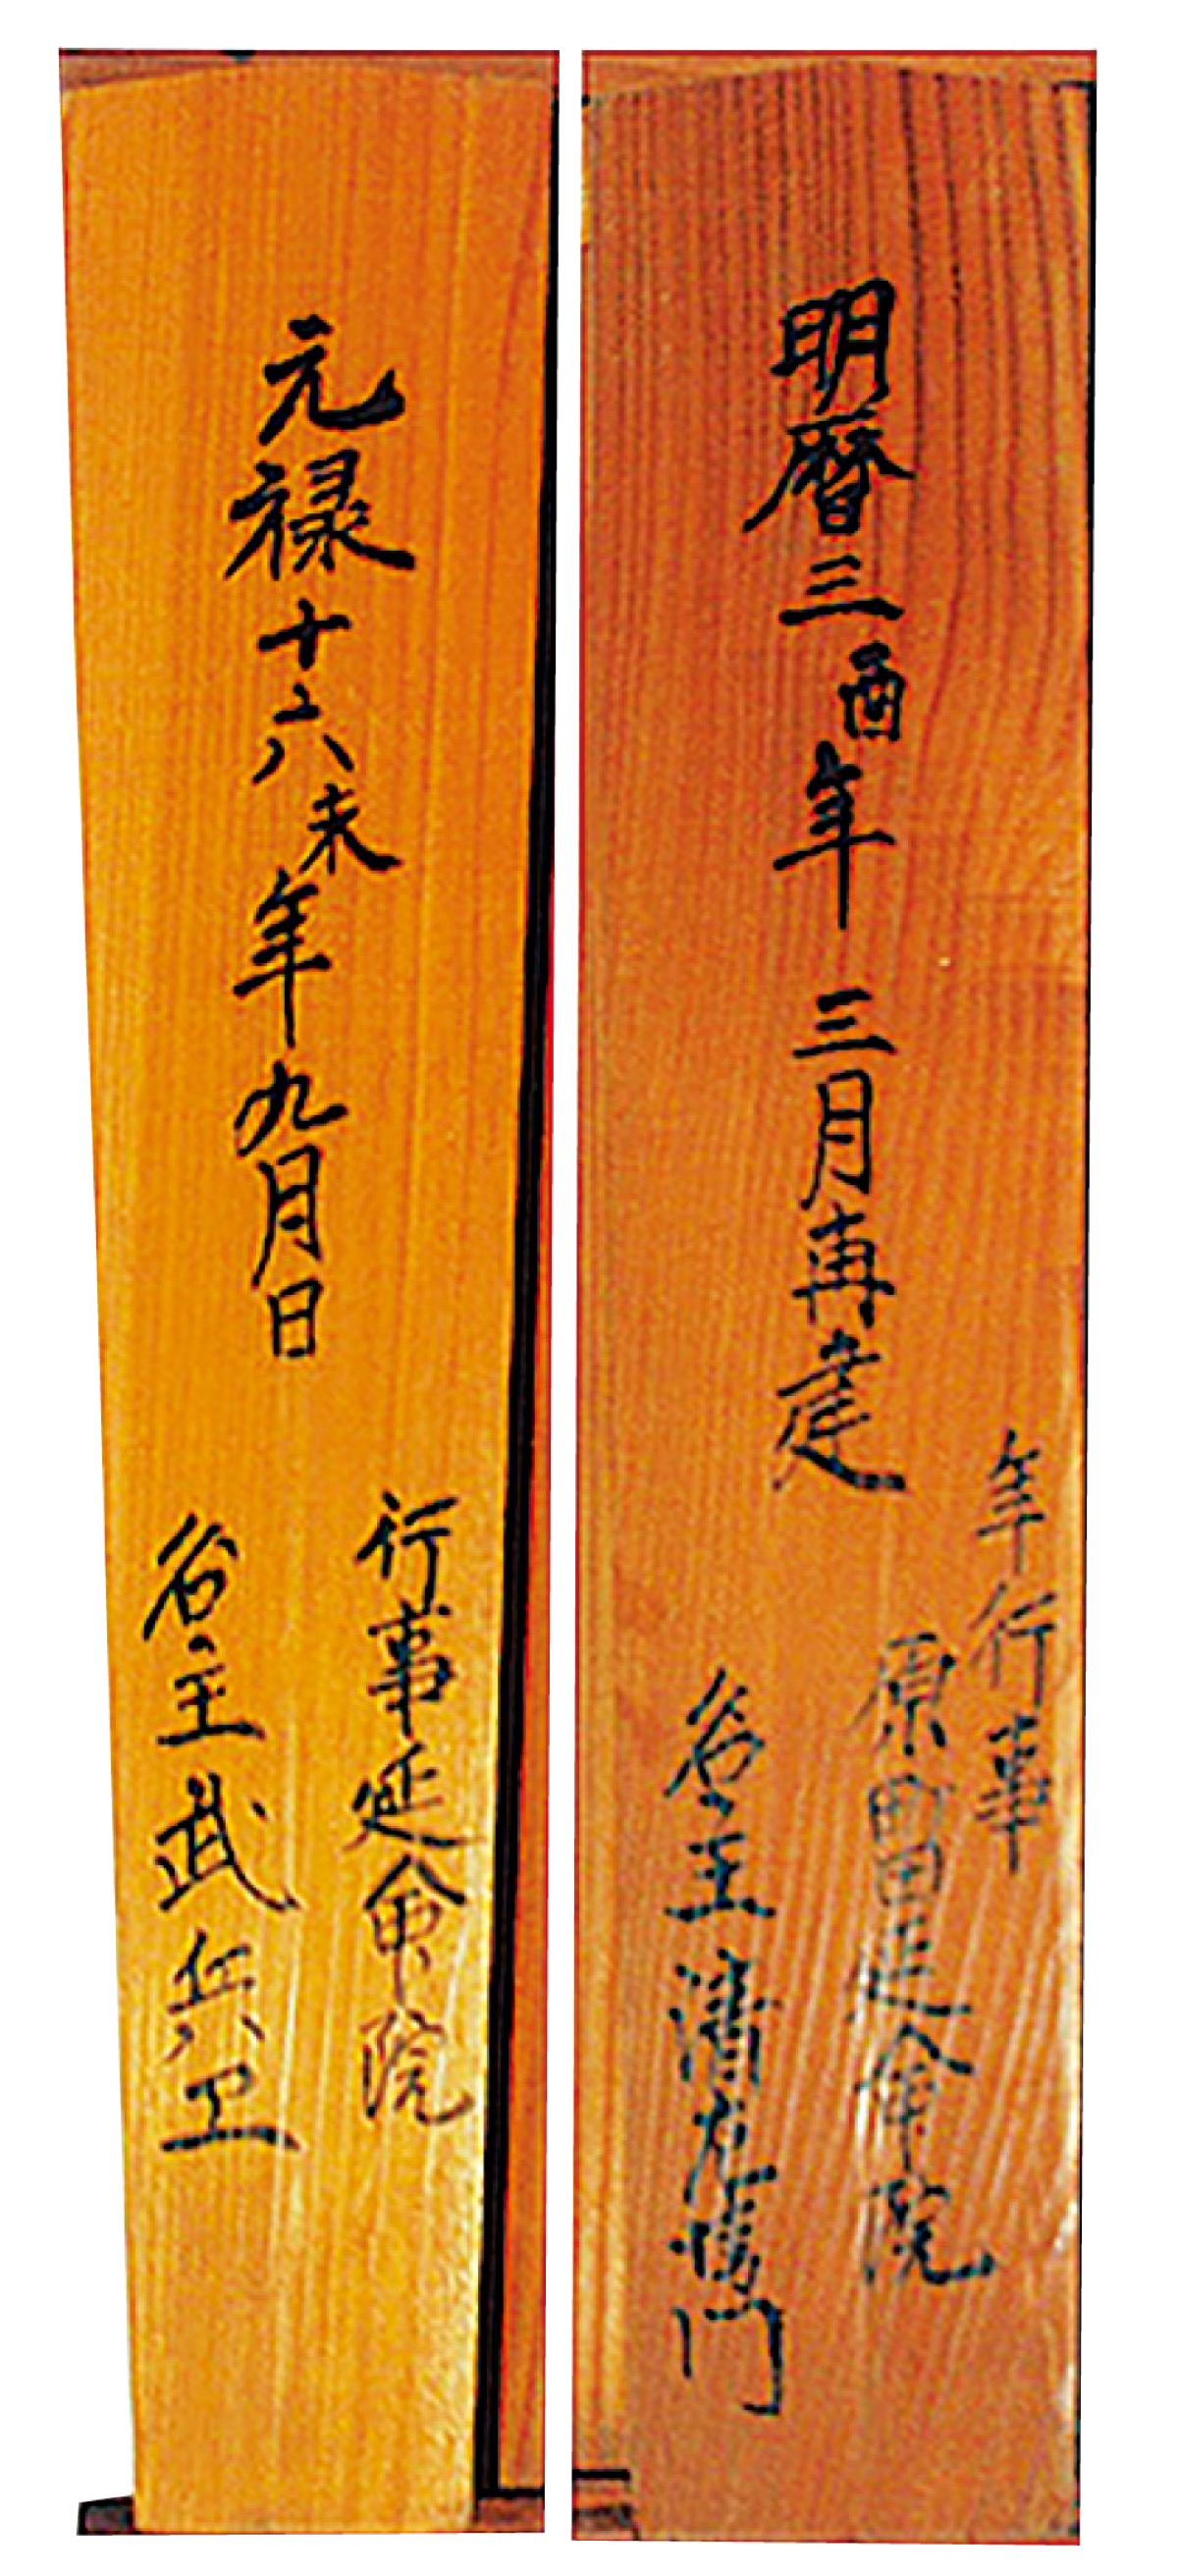 明暦三酉年 三月再建
年行事
原宿延命院
名主 清左衛門
元禄十六未年九月日
行事延命院
名主 武兵卫